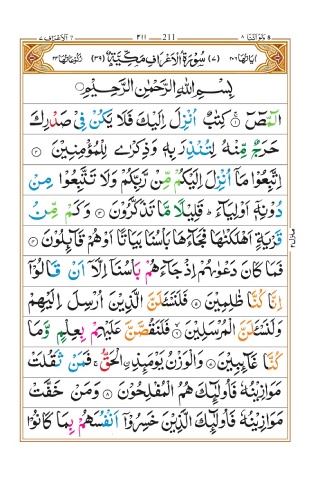 ٧ الاعراف ٧ ٢١١ 211 ولو اننا ٨
اٰیَاتُهَا ٢٠٦ (٧) سُوْرَةُ الْاَعْرَافِ مَكِّیَّةٌ (٣٩) رُكُوْعَاتُهَا ٢٤
بِسْمِ اللّٰهِ الرَّحْمٰنِ الرَّحِیْمِ
الٓمّٓصٓ ۚ١ كِتٰبٌ اُنْزِلَ اِلَیْكَ فَلَا یَكُنْ فِیْ صَدْرِكَ
حَرَجٌ مِّنْهُ لِتُنْذِرَ بِهٖ وَ ذِكْرٰى لِلْمُؤْمِنِیْنَ ٢
اِتَّبِعُوْا مَاۤ اُنْزِلَ اِلَیْكُمْ مِّنْ رَّبِّكُمْ وَ لَا تَتَّبِعُوْا مِنْ
دُوْنِهٖۤ اَوْلِیَآءَ ؕ قَلِیْلًا مَّا تَذَكَّرُوْنَ ٣ وَ كَمْ مِّنْ
قَرْیَةٍ اَهْلَكْنٰهَا فَجَآءَهَا بَاْسُنَا بَیَاتًا اَوْ هُمْ قَآىِٕلُوْنَ ٤
فَمَا كَانَ دَعْوٰىهُمْ اِذْ جَآءَهُمْ بَاْسُنَاۤ اِلَّاۤ اَنْ قَالُوْۤا
اِنَّا كُنَّا ظٰلِمِیْنَ ٥ فَلَنَسْـَٔلَنَّ الَّذِیْنَ اُرْسِلَ اِلَیْهِمْ
وَ لَنَسْـَٔلَنَّ الْمُرْسَلِیْنَ ٦ فَلَنَقُصَّنَّ عَلَیْهِمْ بِعِلْمٍ وَّ مَا
كُنَّا غَآىِٕبِیْنَ ٧ وَ الْوَزْنُ یَوْمَىِٕذِ ِ۟الْحَقُّ ۚ فَمَنْ ثَقُلَتْ
مَوَازِیْنُهٗ فَاُولٰٓىِٕكَ هُمُ الْمُفْلِحُوْنَ ٨ وَ مَنْ خَفَّتْ
مَوَازِیْنُهٗ فَاُولٰٓىِٕكَ الَّذِیْنَ خَسِرُوْۤا اَنْفُسَهُمْ بِمَا كَانُوْا
منزل ٢